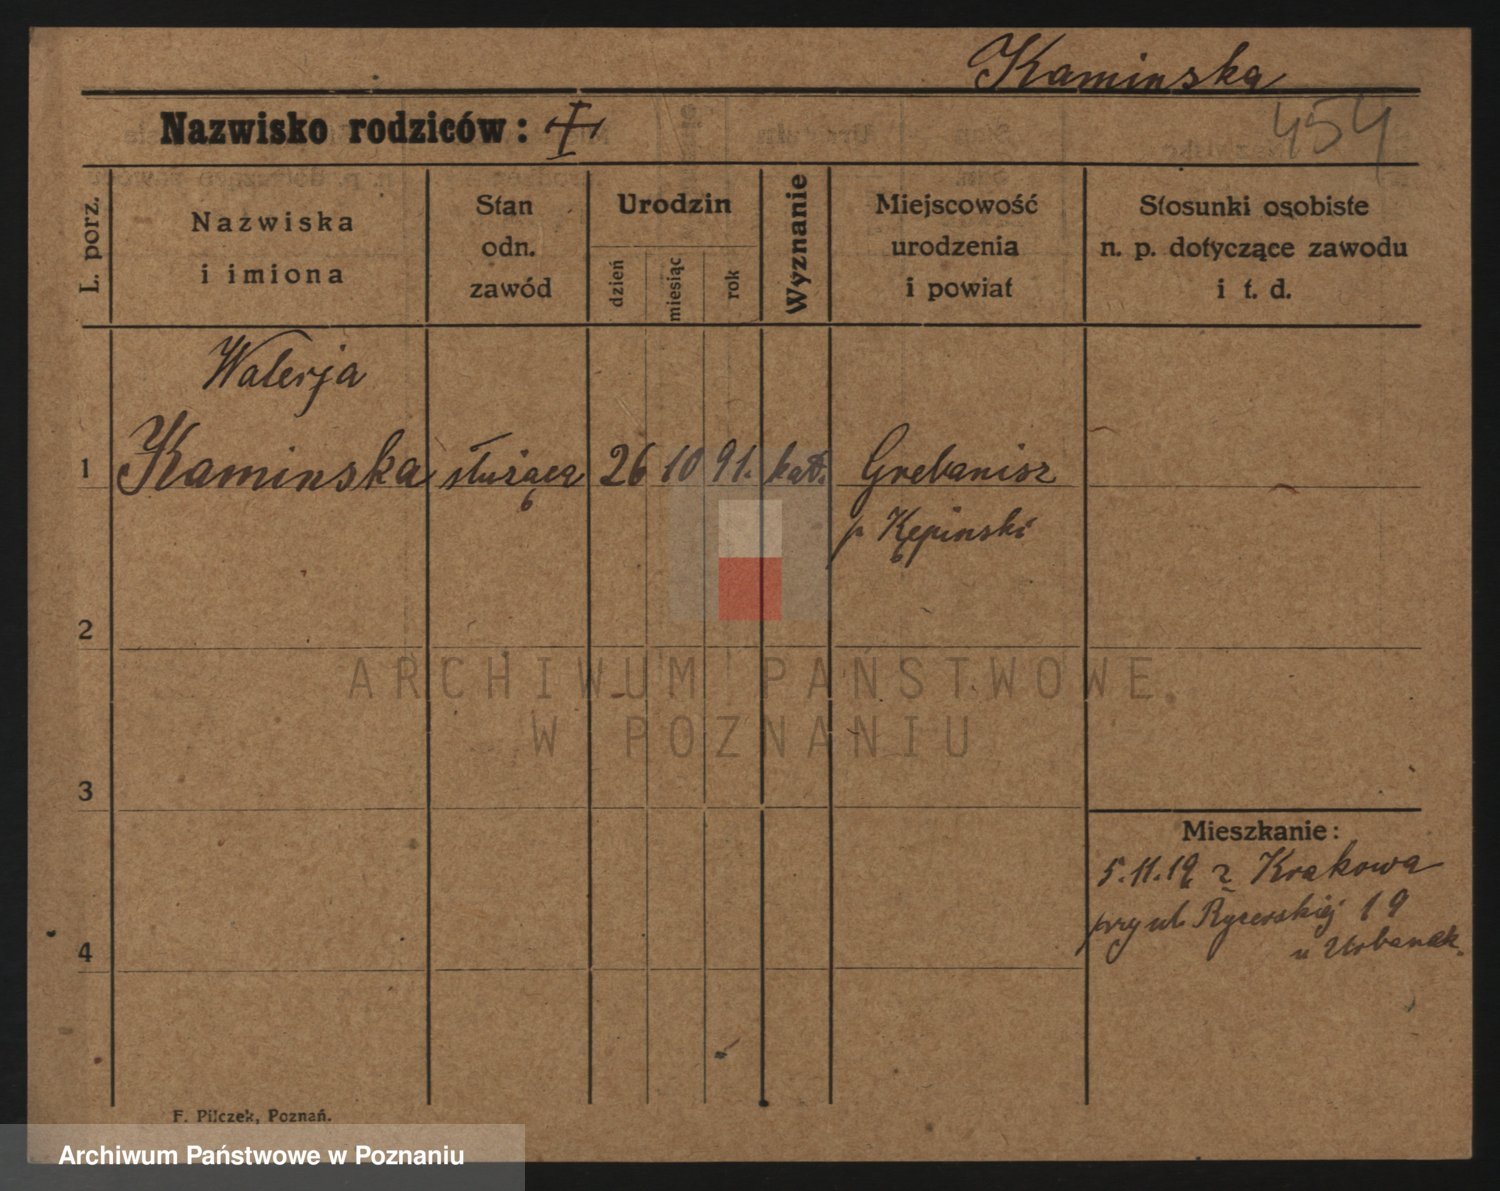 Kaminska
Nazwisko rodziców: +
454
L. porz.
Nazwiska
i imiona
Stan
odn.
zawód
Urodzin
dzień
miesiąc
rok
Wyznanie
Miejscowość
urodzenia
i powiat
Stosunki osobiste
n. p. dotyczące zawodu
i t. d.
Walerja
1 Kaminska służąca 26 10 91. kat. Grebanisz
p Kępinski
2
3
4
Mieszkanie:
5.11.19 z Krakowa
przy ul. Rycerskiej 19
u Urbaniak.
F. Pilczek, Poznań.
ARCHIWUM PAŃSTWOWE
W POZNANIU
Archiwum Państwowe w Poznaniu